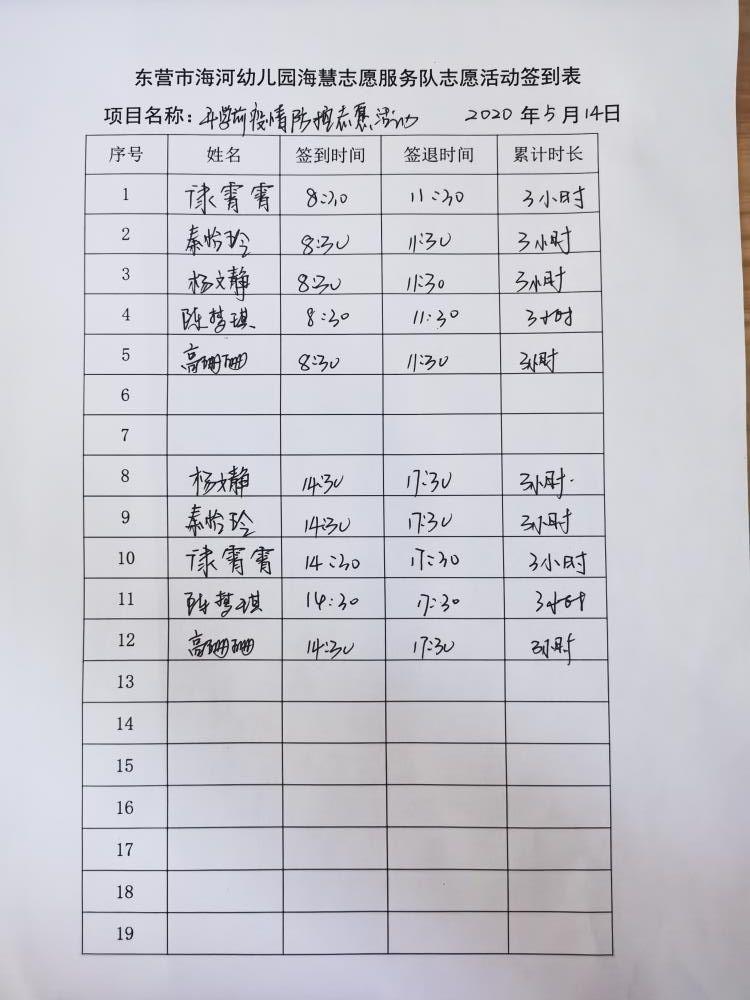 东营市海河幼儿园海慧志愿服务队志愿活动签到表
项目名称：开学前疫情防控志愿活动 2020年5月14日
序号 姓名 签到时间 签退时间 累计时长
1 霄霄 8:30 11:30 3小时
2 秦怡玲 8:30 11:30 3小时
3 杨文静 8:30 11:30 3小时
4 陈梦琪 8:30 11:30 3小时
5 高珊珊 8:30 11:30 3小时
6
7
8 杨文静 14:30 17:30 3小时
9 秦怡玲 14:30 17:30 3小时
10 霄霄 14:30 17:30 3小时
11 陈梦琪 14:30 17:30 3小时
12 高珊珊 14:30 17:30 3小时
13
14
15
16
17
18
19